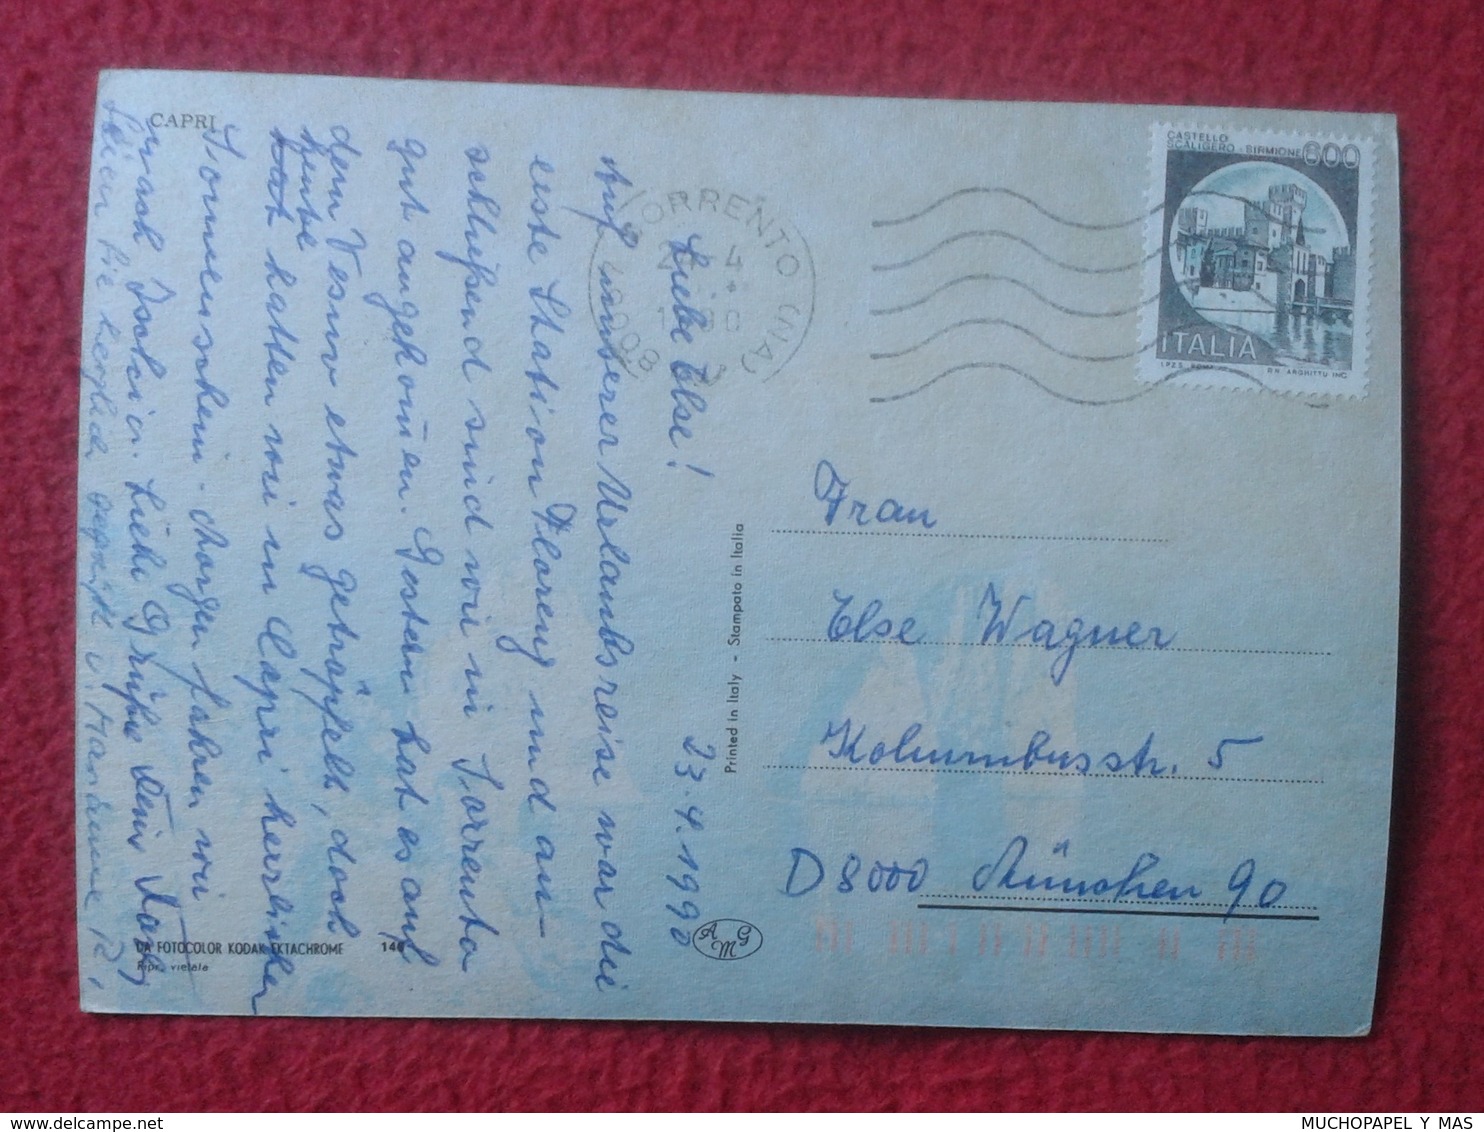 CAPRI
Liebe Else!
23.4.1990
Auf unserer Urlaubsreise war die
erste Station Florenz und an-
schließend sind wir in Sorrento
gut angekommen. Gestern hat es auf
dem Vesuv etwas getröpfelt, doch
heute
hatten wir in Capri herrlichen
Sonnenschein. Morgen fahren wir
nach Ischia. Liebe Grüße
Seien Sie herzlich gegrüßt v. Marianne R.
UA FOTOCOLOR KODAK EKTACHROME 146
Ripr. vietata
Printed in Italy - Stampato in Italia
AMG
SORRENTO (NA)
4
1990
CASTELLO
SCALIGERO - SIRMIONE 600
ITALIA
I.P.Z.S. ROMA R.R. ARGHITTU INC.
Frau
Else Wagner
Kolumbusstr. 5
D 8000 München 90
MUCHOPAPEL Y MAS